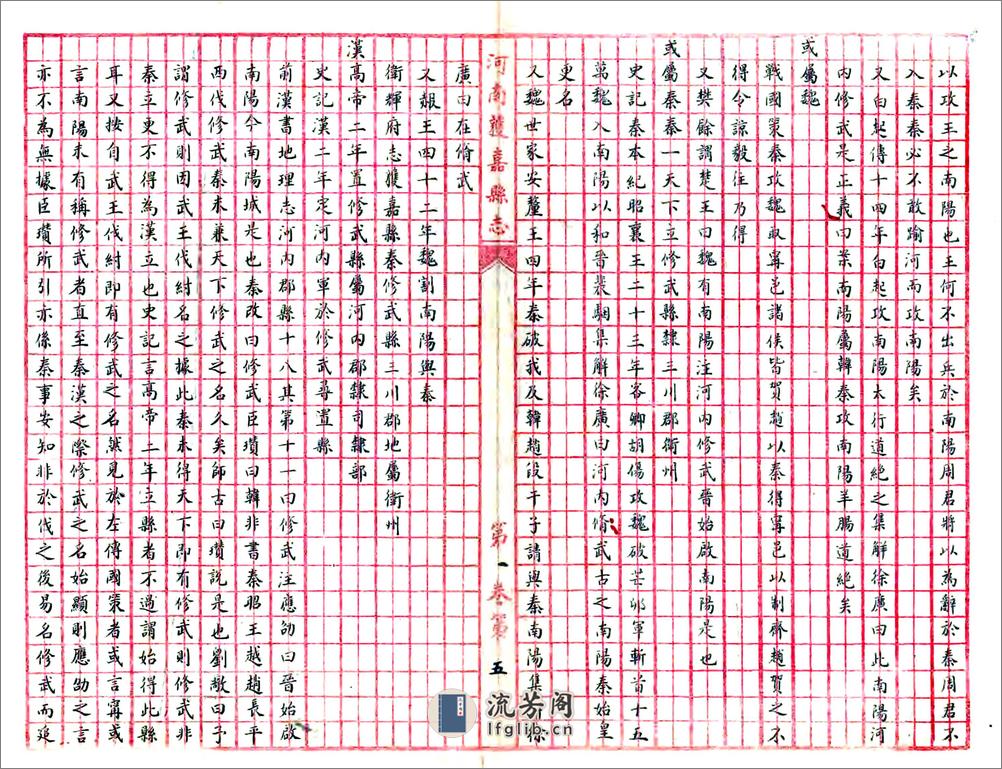 以攻王之南陽也王何不出兵於南陽周君將以為辭於秦周君不
入秦秦必不敢踰河而攻南陽矣
又白起傳十四年白起攻南陽太行道絕之集解徐廣曰此南陽河
內修武是正義曰案南陽屬韓秦攻南陽羊腸道絕矣
或屬魏
戰國策秦攻魏取甯邑諸侯皆賀趙以秦得甯邑以制齊趙賀之不
得令諒毅往乃得
又樊餘謂楚王曰魏有南陽注河內修武晉始啟南陽是也
或屬秦秦一天下立修武縣隸三川郡衛州
史記秦本紀昭襄王三十三年客卿胡傷攻魏破芒卯軍斬首十五
萬魏入南陽以和晉裴駰集解徐廣曰河內脩武古之南陽秦始皇
更名
又魏世家安釐王四年秦破我及韓趙段干子請與秦南陽集解徐
河南獲嘉縣志
第一卷第
五
廣曰在脩武
又赧王四十二年魏割南陽與秦
衛輝府志獲嘉縣秦修武縣三川郡地屬衛州
漢高帝二年置修武縣屬河內郡隸司隸部
史記漢二年定河內軍於修武尋置縣
前漢書地理志河內郡縣十八其第十一曰修武注應劭曰晉始啟
南陽今南陽城是也秦改曰修武臣瓚曰韓非書秦昭王越趙長平
西伐修武秦未兼天下修武之名久矣師古曰瓚說是也劉敞曰予
謂修武則因武王伐紂名之據此秦未得天下即有修武則修武非
秦立更不得為漢立也史記言高帝二年立縣者不過謂始得此縣
耳又按自武王伐紂即有修武之名然見於左傳國策者或言甯或
言南陽未有稱修武者直至秦漢之際修武之名始顯則應劭之言
亦不為無據臣瓚所引亦係秦事安知非於伐之後易名修武而追
流芳阁
lfglib.cn